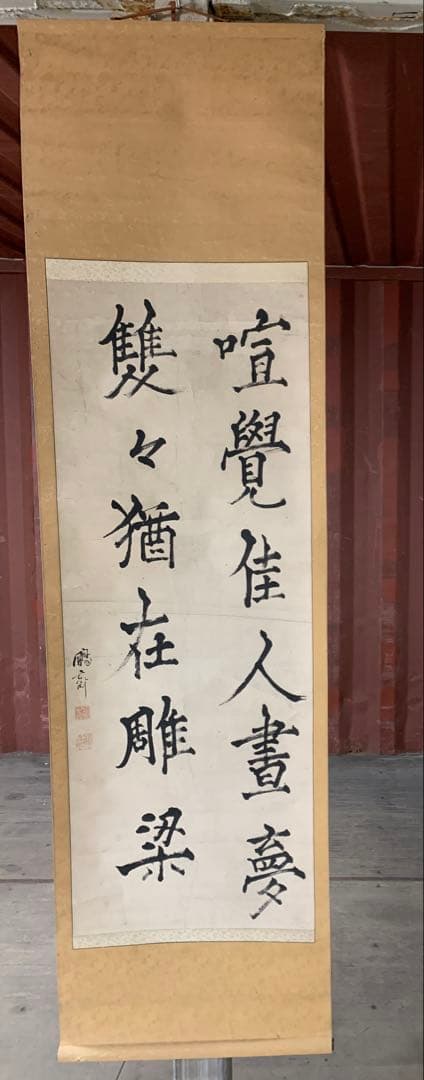 喧覺佳人晝夢
雙々猶在雕梁